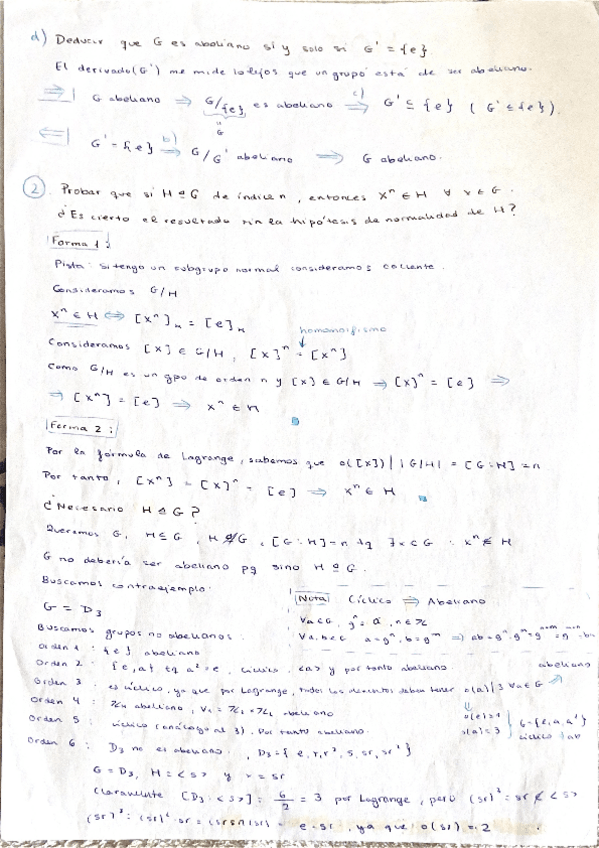 d) Deducir que G es abeliano si y solo si G' = {e}.
El derivado (G') me mide lo lejos que un grupo está de ser abeliano.
⇒| G abeliano ⇒ G/{e} es abeliano ⇒ c) G' ⊆ {e} (G' ≤ {e}).
G
⇐| G' = {e} ⇒ b) G/G' abeliano ⇒ G abeliano.
2 Probar que si H ⊴ G de índice n, entonces x^n ∈ H ∀ x ∈ G.
¿Es cierto el resultado sin la hipótesis de normalidad de H?
Forma 1:
Pista: si tengo un subgrupo normal consideramos cociente.
Consideramos G/H
x^n ∈ H ⇔ [x^n]_H = [e]_H
homomorfismo
Consideramos [x] ∈ G/H, [x]^n = [x^n]
Como G/H es un gpo de orden n y [x] ∈ G/H ⇒ [x]^n = [e] ⇒
⇒ [x^n] = [e] ⇒ x^n ∈ H
Forma 2:
Por la fórmula de Lagrange, sabemos que o([x]) | |G/H| = [G:H] = n
Por tanto, [x^n] = [x]^n = [e] ⇒ x^n ∈ H
¿Necesario H ⊴ G?
Queremos G, H ≤ G, H ⋬ G, [G:H] = n tq ∃x ∈ G : x^n ∉ H
G no debería ser abeliano pq sino H ⊴ G.
Buscamos contraejemplo:
Nota: Cíclico ⇒ Abeliano
G = D3
Buscamos grupos no abelianos:
Orden 1: {e} abeliano
abeliano
Orden 2: {e, a} tq a² = e, cíclico, <a> y por tanto abeliano.
Orden 3: es cíclico, ya que por Lagrange, todos los elementos deben tener o(a)|3 ∀a ∈ G
Orden 4: Z4 abeliano, V4 = Z2 × Z2 abeliano
Orden 5: cíclico (análogo al 3). Por tanto abeliano.
Orden 6: D3 no es abeliano, D3 = {e, r, r², s, sr, sr²}
G = D3, H = <s> y x = sr
Claramente [D3:<s>] = 6/2 = 3 por Lagrange, pero (sr)³ = sr ∉ <s>
e·sr, ya que o(sr) = 2